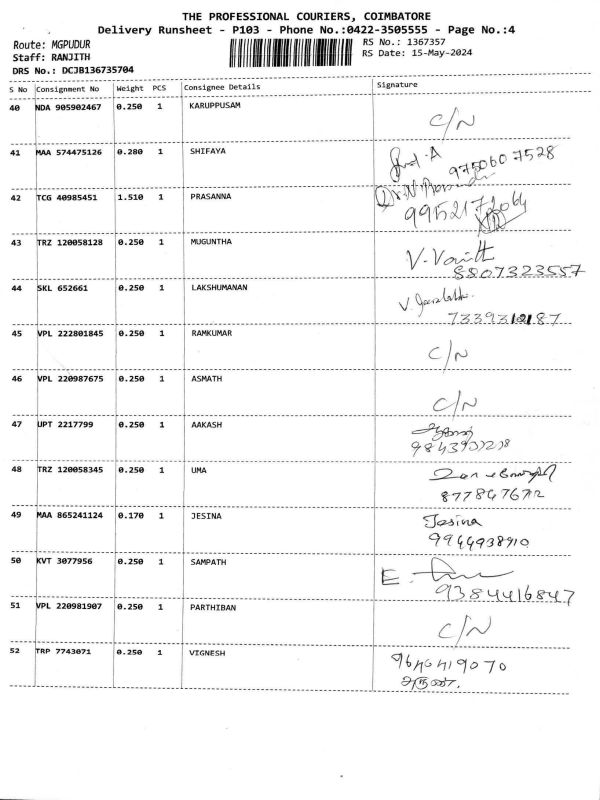 THE PROFESSIONAL COURIERS, COIMBATORE
Delivery Runsheet - P103 - Phone No.:0422-3505555 - Page No.:4
Route: MGPUDUR
RS No.: 1367357
Staff: RANJITH
RS Date: 15-May-2024
DRS No.: DCJB136735704
S No Consignment No Weight PCS Consignee Details Signature
40 NDA 905902467 0.250 1 KARUPPUSAM
C/N
41 MAA 574475126 0.280 1 SHIFAYA
9750607528
42 TCG 40985451 1.510 1 PRASANNA
9952172064
43 TRZ 120058128 0.250 1 MUGUNTHA
V.
8807323557
44 SKL 652661 0.250 1 LAKSHUMANAN
V.
45 VPL 222801845 0.250 1 RAMKUMAR
C/N
46 VPL 220987675 0.250 1 ASMATH
C/N
47 UPT 2217799 0.250 1 AAKASH
48 TRZ 120058345 0.250 1 UMA
49 MAA 865241124 0.170 1 JESINA
Jesina
9944938910
50 KVT 3077956 0.250 1 SAMPATH
E.
9384416847
51 VPL 220981907 0.250 1 PARTHIBAN
C/N
52 TRP 7743071 0.250 1 VIGNESH
அருண்.